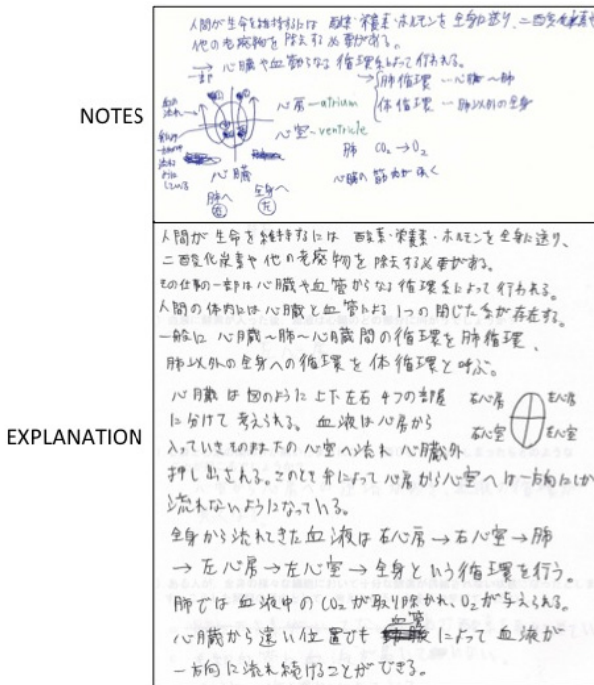 NOTES
人間が生命を維持するには 酸素・栄養素・ホルモンを全身に送り、二酸化炭素や
他の老廃物を除去する必要がある。
→ 心臓や血管からなる循環系によって行われる。
一部
肺循環 … 心臓〜肺
体循環 … 肺以外の全身
血の
流れ
心房 — atrium
心室 — ventricle
肺 CO₂ → O₂
心臓の筋肉が
心臓
肺へ
右
全身へ
左
EXPLANATION
人間が生命を維持するには 酸素・栄養素・ホルモンを全身に送り、
二酸化炭素や他の老廃物を除去する必要がある。
その仕事の一部は心臓や血管からなる循環系によって行われる。
人間の体内には心臓と血管による1つの閉じた系が存在する。
一般に心臓〜肺〜心臓間の循環を肺循環、
肺以外の全身への循環を体循環と呼ぶ。
心臓は図のように上下左右4つの部屋
に分けて考えられる。血液は心房から
入っていき下の心室へ流れ心臓外
押し出される。このとき弁によって心房から心室へは一方向にしか
流れないようになっている。
右心房 左心房
右心室 左心室
全身から流れてきた血液は右心房→右心室→肺
→左心房→左心室→全身という循環を行う。
肺では血液中のCO₂が取り除かれ、O₂が与えられる。
心臓から遠い位置でも 血管 によって血液が
一方向に流れ続けることができる。